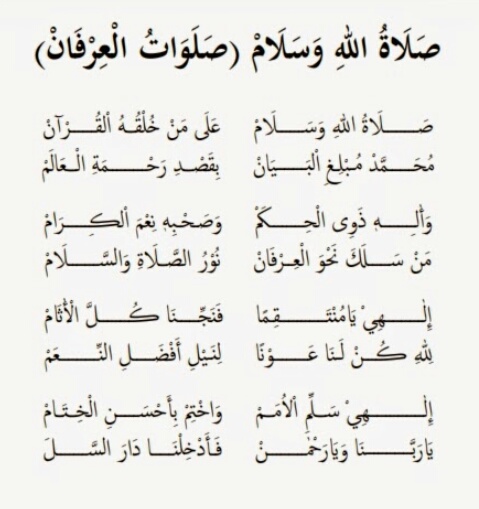 صَلَاةُ اللهِ وَسَلَامْ (صَلَوَاتُ الْعِرْفَانْ)
صَلَاةُ اللهِ وَسَلَامْ عَلَى مَنْ خُلْقُهُ الْقُرْآنْ
مُحَمَّدْ مُبْلِغِ الْبَيَانْ بِقَصْدِ رَحْمَةِ الْعَالَمْ
وَاٰلِهِ ذَوِى الْحِكَمْ وَصَحْبِهِ نِعْمَ الْكِرَامْ
مَنْ سَلَكَ نَحْوَ الْعِرْفَانْ نُوْرُ الصَّلَاةِ وَالسَّلَامْ
إِلٰهِيْ يَامُنْتَقِمَا فَنَجِّنَا كُلَّ الْأَثَامْ
لِلهِ كُنْ لَنَا عَوْنًا لِنَيْلِ أَفْضَلِ النِّعَمْ
إِلٰهِيْ سَلِّمِ الْاُمَمْ وَاخْتِمْ بِأَحْسَنِ الْخِتَامْ
يَارَبَّنَا وَيَارَحْمٰنْ فَأَدْخِلْنَا دَارَ السَّلَ